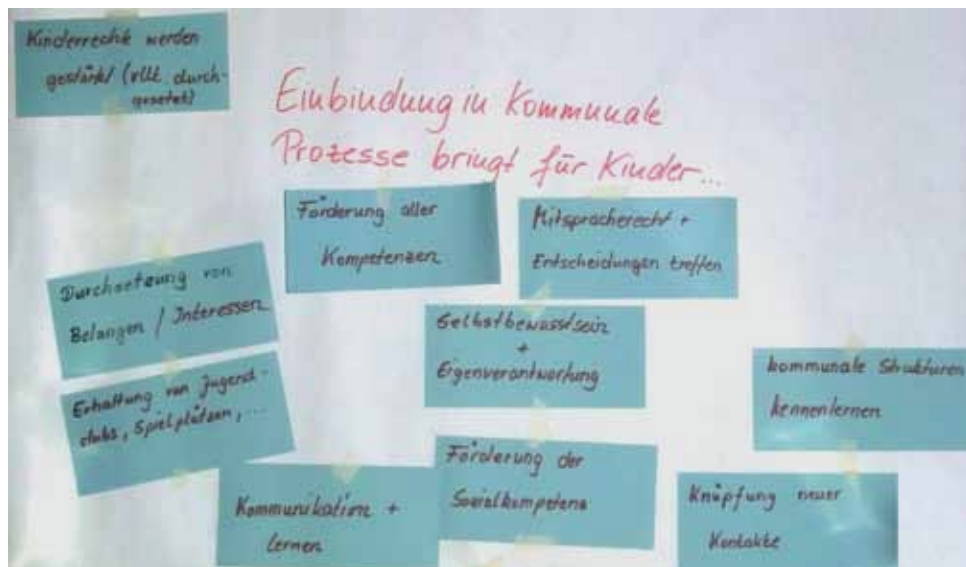 Kinderrechte werden
gestärkt (vllt. durch-
gesetzt)
Einbindung in Kommunale
Prozesse bringt für Kinder...
Förderung aller
Kompetenzen
Mitspracherecht +
Entscheidungen treffen
Durchsetzung von
Belangen / Interessen
Selbstbewusstsein
+
Eigenverantwortung
kommunale Strukturen
kennenlernen
Erhaltung von Jugend-
clubs, Spielplätzen, ...
Förderung der
Sozialkompetenz
Kommunikation +
lernen
Knüpfung neuer
Kontakte